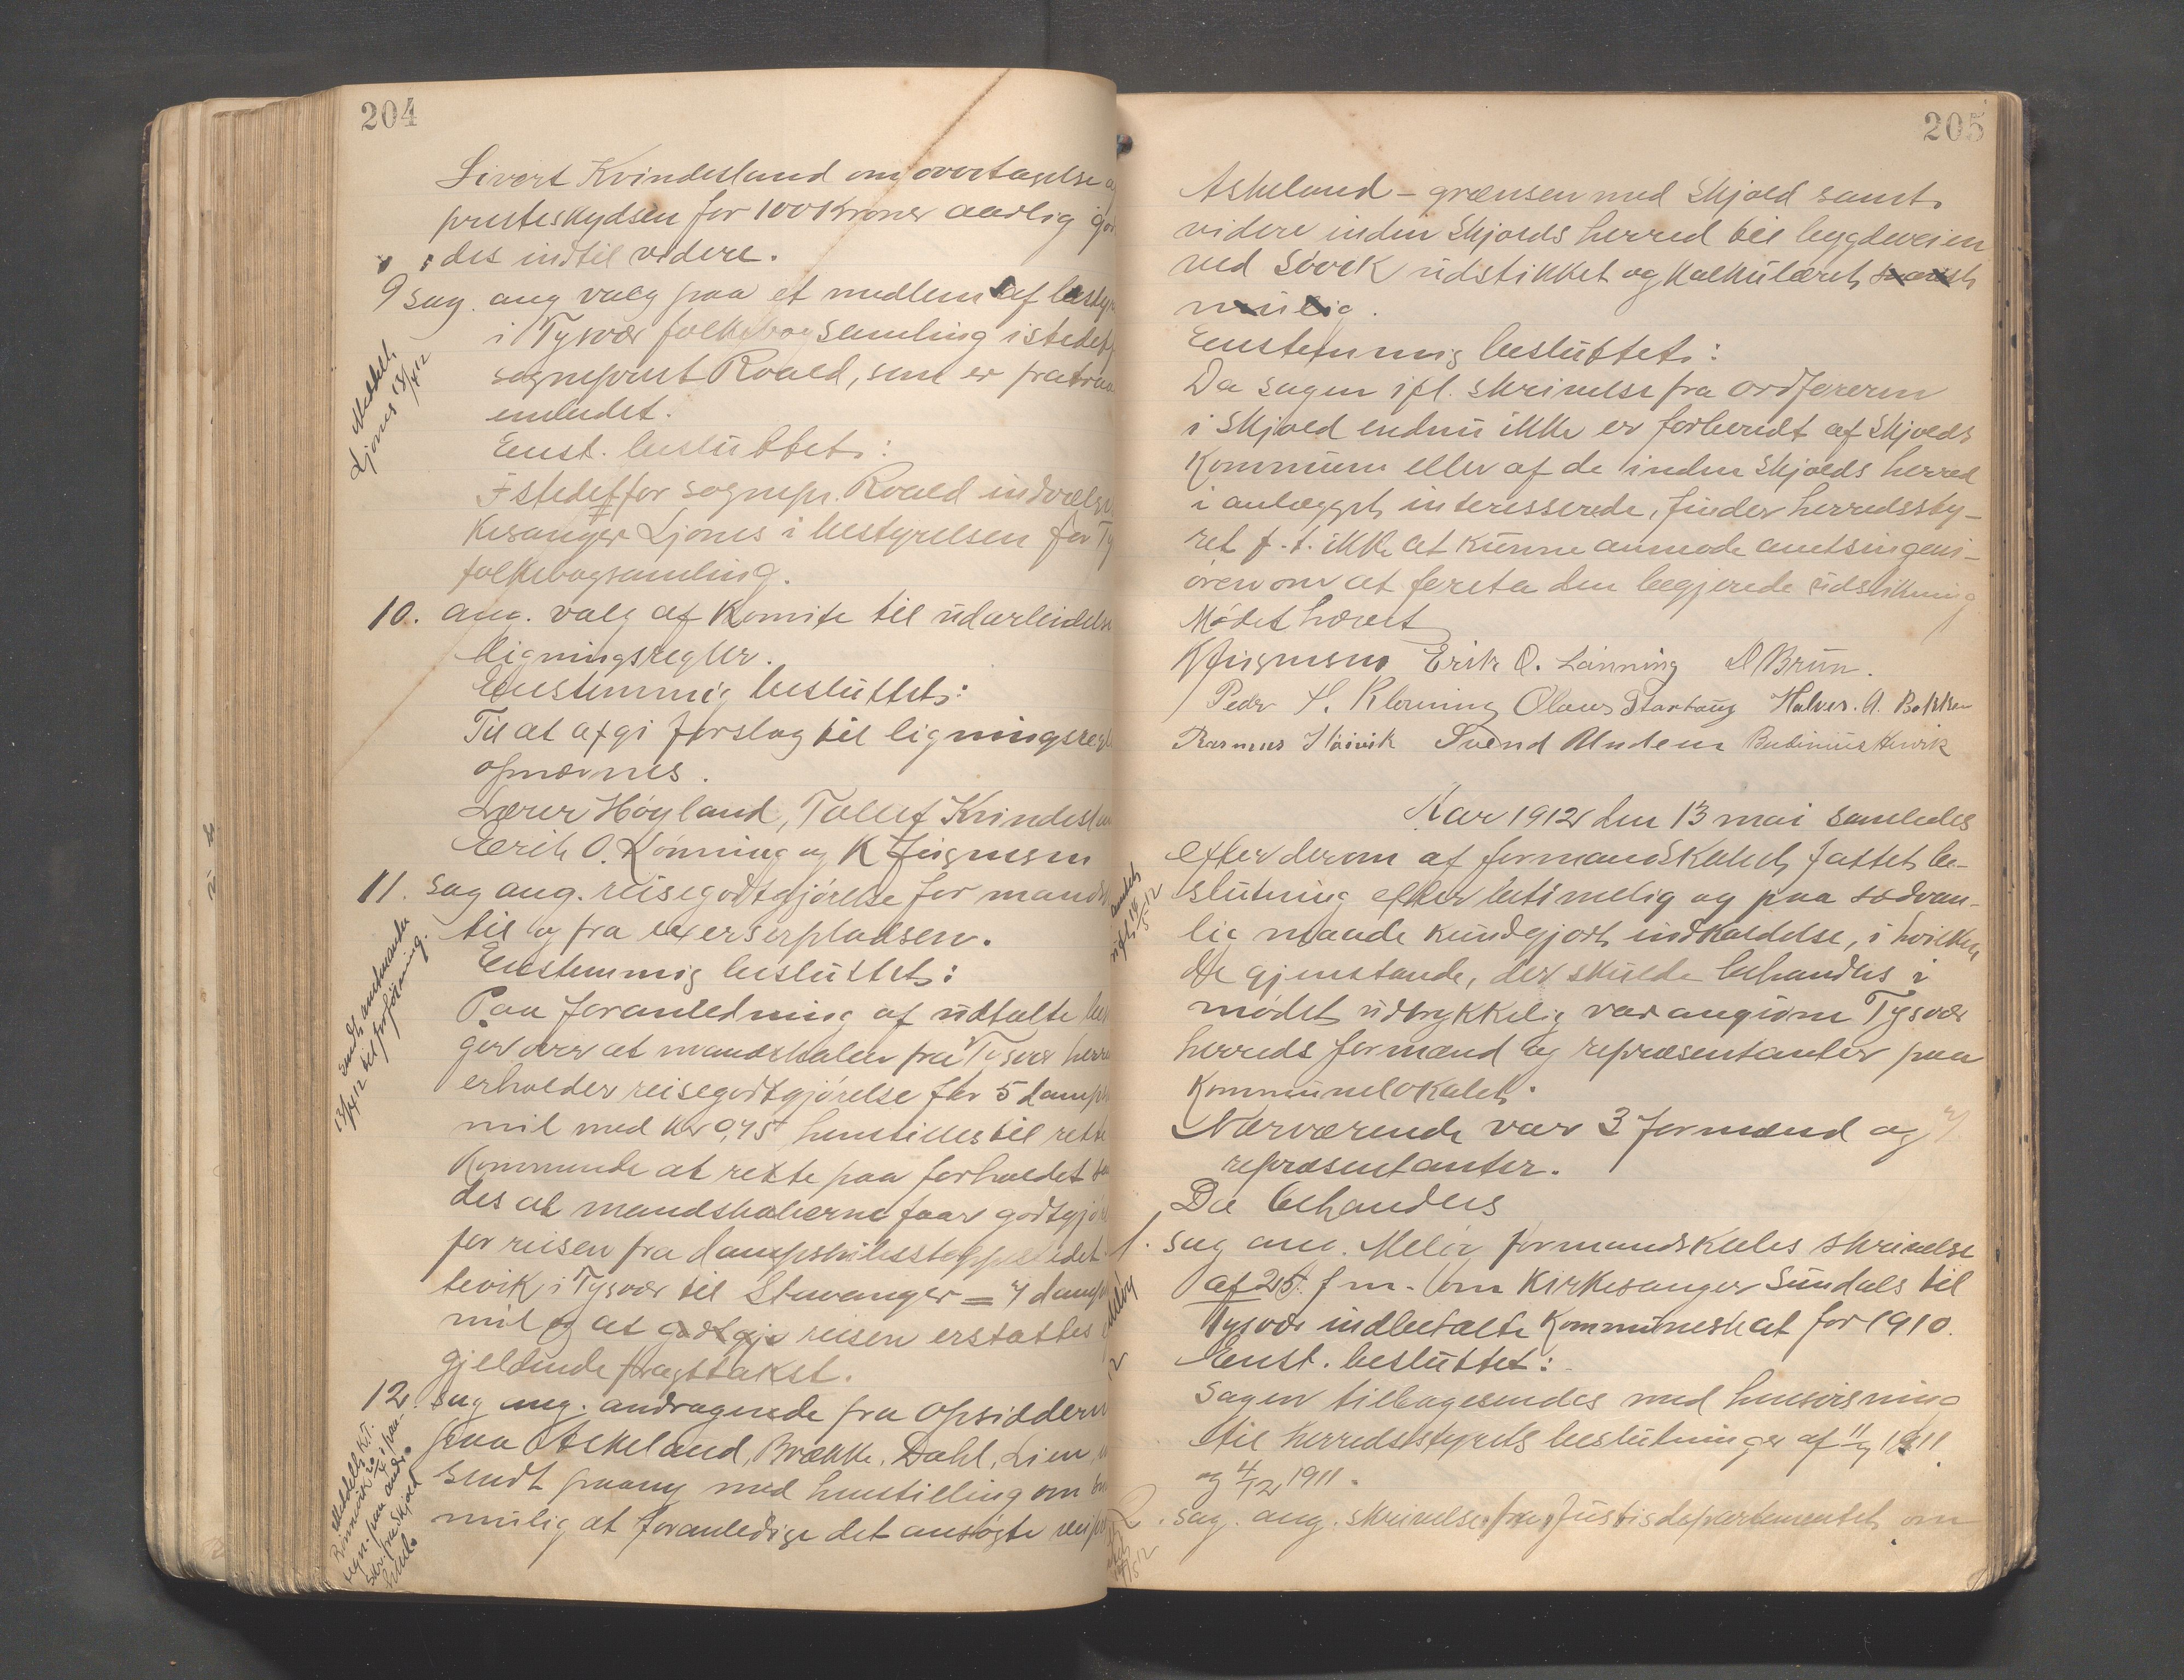 204
Sivert Kvindesland om overtagelse a
presteskydsen for 100 Kroner aarlig god
des indtil videre.
9 Sag. ang valg paa et medlem af bestyr
i Tysvær folkebogsamling istedetf
sogneprest Roald, som er fratraa
embedet.
Meddelt
Ljones 13/4 12
Enst. besluttet:
I stedet for sognepr. Roald indvælges
Kirkesanger Ljones i bestyrelsen for Ty
folkebogsamling.
10. ang. valg af Komite til udarbeidelse
ligningsregler.
Enstemmig besluttet:
Til at afgi forslag til ligningsregl
opnævnes.
Lærer Høyland, Tollef Kvindesla
Erik O. Lønning og K Gismesen
11. Sag ang. reisegodtgjørelse for mandsk
til og fra exerserpladsen.
Sendt amtmanden
13/4 12 til forføining.
Enstemmig besluttet:
Paa foranledning af udtalte
ger over at mandskaber fra Tysvær herre
erholder reisegodtgjørelse for 5 damps
mil med Kr 0,75 henstilles til rette
Kommende at rette paa forholdet
des at mandskaberne faar godtgjør
for reisen fra dampskibsstoppestedet
tevik i Tysvær til Stavanger = 4 damps
mil og at godtgjø reisen erstattes
gjeldende fragttakst.
12. Sag ang. andragende fra Opsiddern
paa Askeland, Brække, Dahl, Lien,
sendt paany med henstilling om
mulig at foranledige det ansøgte
205
Askeland - grænsen med Skjold samt
videre inden Skjolds herred til bygdeveien
ved Søvik udstikket og Kalkuleret snarest
mulig.
Enstemmig besluttet:
Da sagen ifl. skrivelse fra Ordføreren
i Skjold endnu ikke er forberedt af Skjolds
Kommune eller af de inden Skjolds herred
i anlægget interesserede, finder herredssty-
ret f. t. ikke at kunne anmode amtsingeni-
øren om at foreta den begjerede udstikning
Mødet hævet
K Gismesen Erik O. Lønning D Brun.
Peder S. Kloning Olaus Stortaug Halvor. A. Bakken
Rasmus Høivik Svend Andem
Aar 1912 den 13 mai samledes
efter derom af formandskabet fattet be-
slutning efter betimelig og paa sædvan-
lig maade kundgjort indkaldelse, i hvilken
de gjenstande, der skulde behandles i
mødet udtrykkelig var angivne Tysvær
herreds formænd og repræsentanter paa
Kommunelokalet.
Nærværende var 3 formænd og 9
repræsentanter.
Da behandles
1. Sag ang. Meløy formandskabs skrivelse
af 25. f m. om Kirkesanger Sundals til
Tysvær indbetalte Kommuneskat for 1910.
Enst. besluttet:
Sagen tilbagesendes med henvisning
til herredsstyrets beslutninger af 11/9 1911
og 4/12 1911.
2. Sag. ang. skrivelse fra Justisdepartementet om